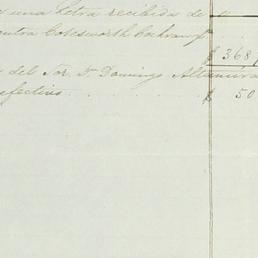 una letra recibida de
contra Cotesworth
$ 368
del Sor. Dn. Domingo Altamira
efectivo $ 50